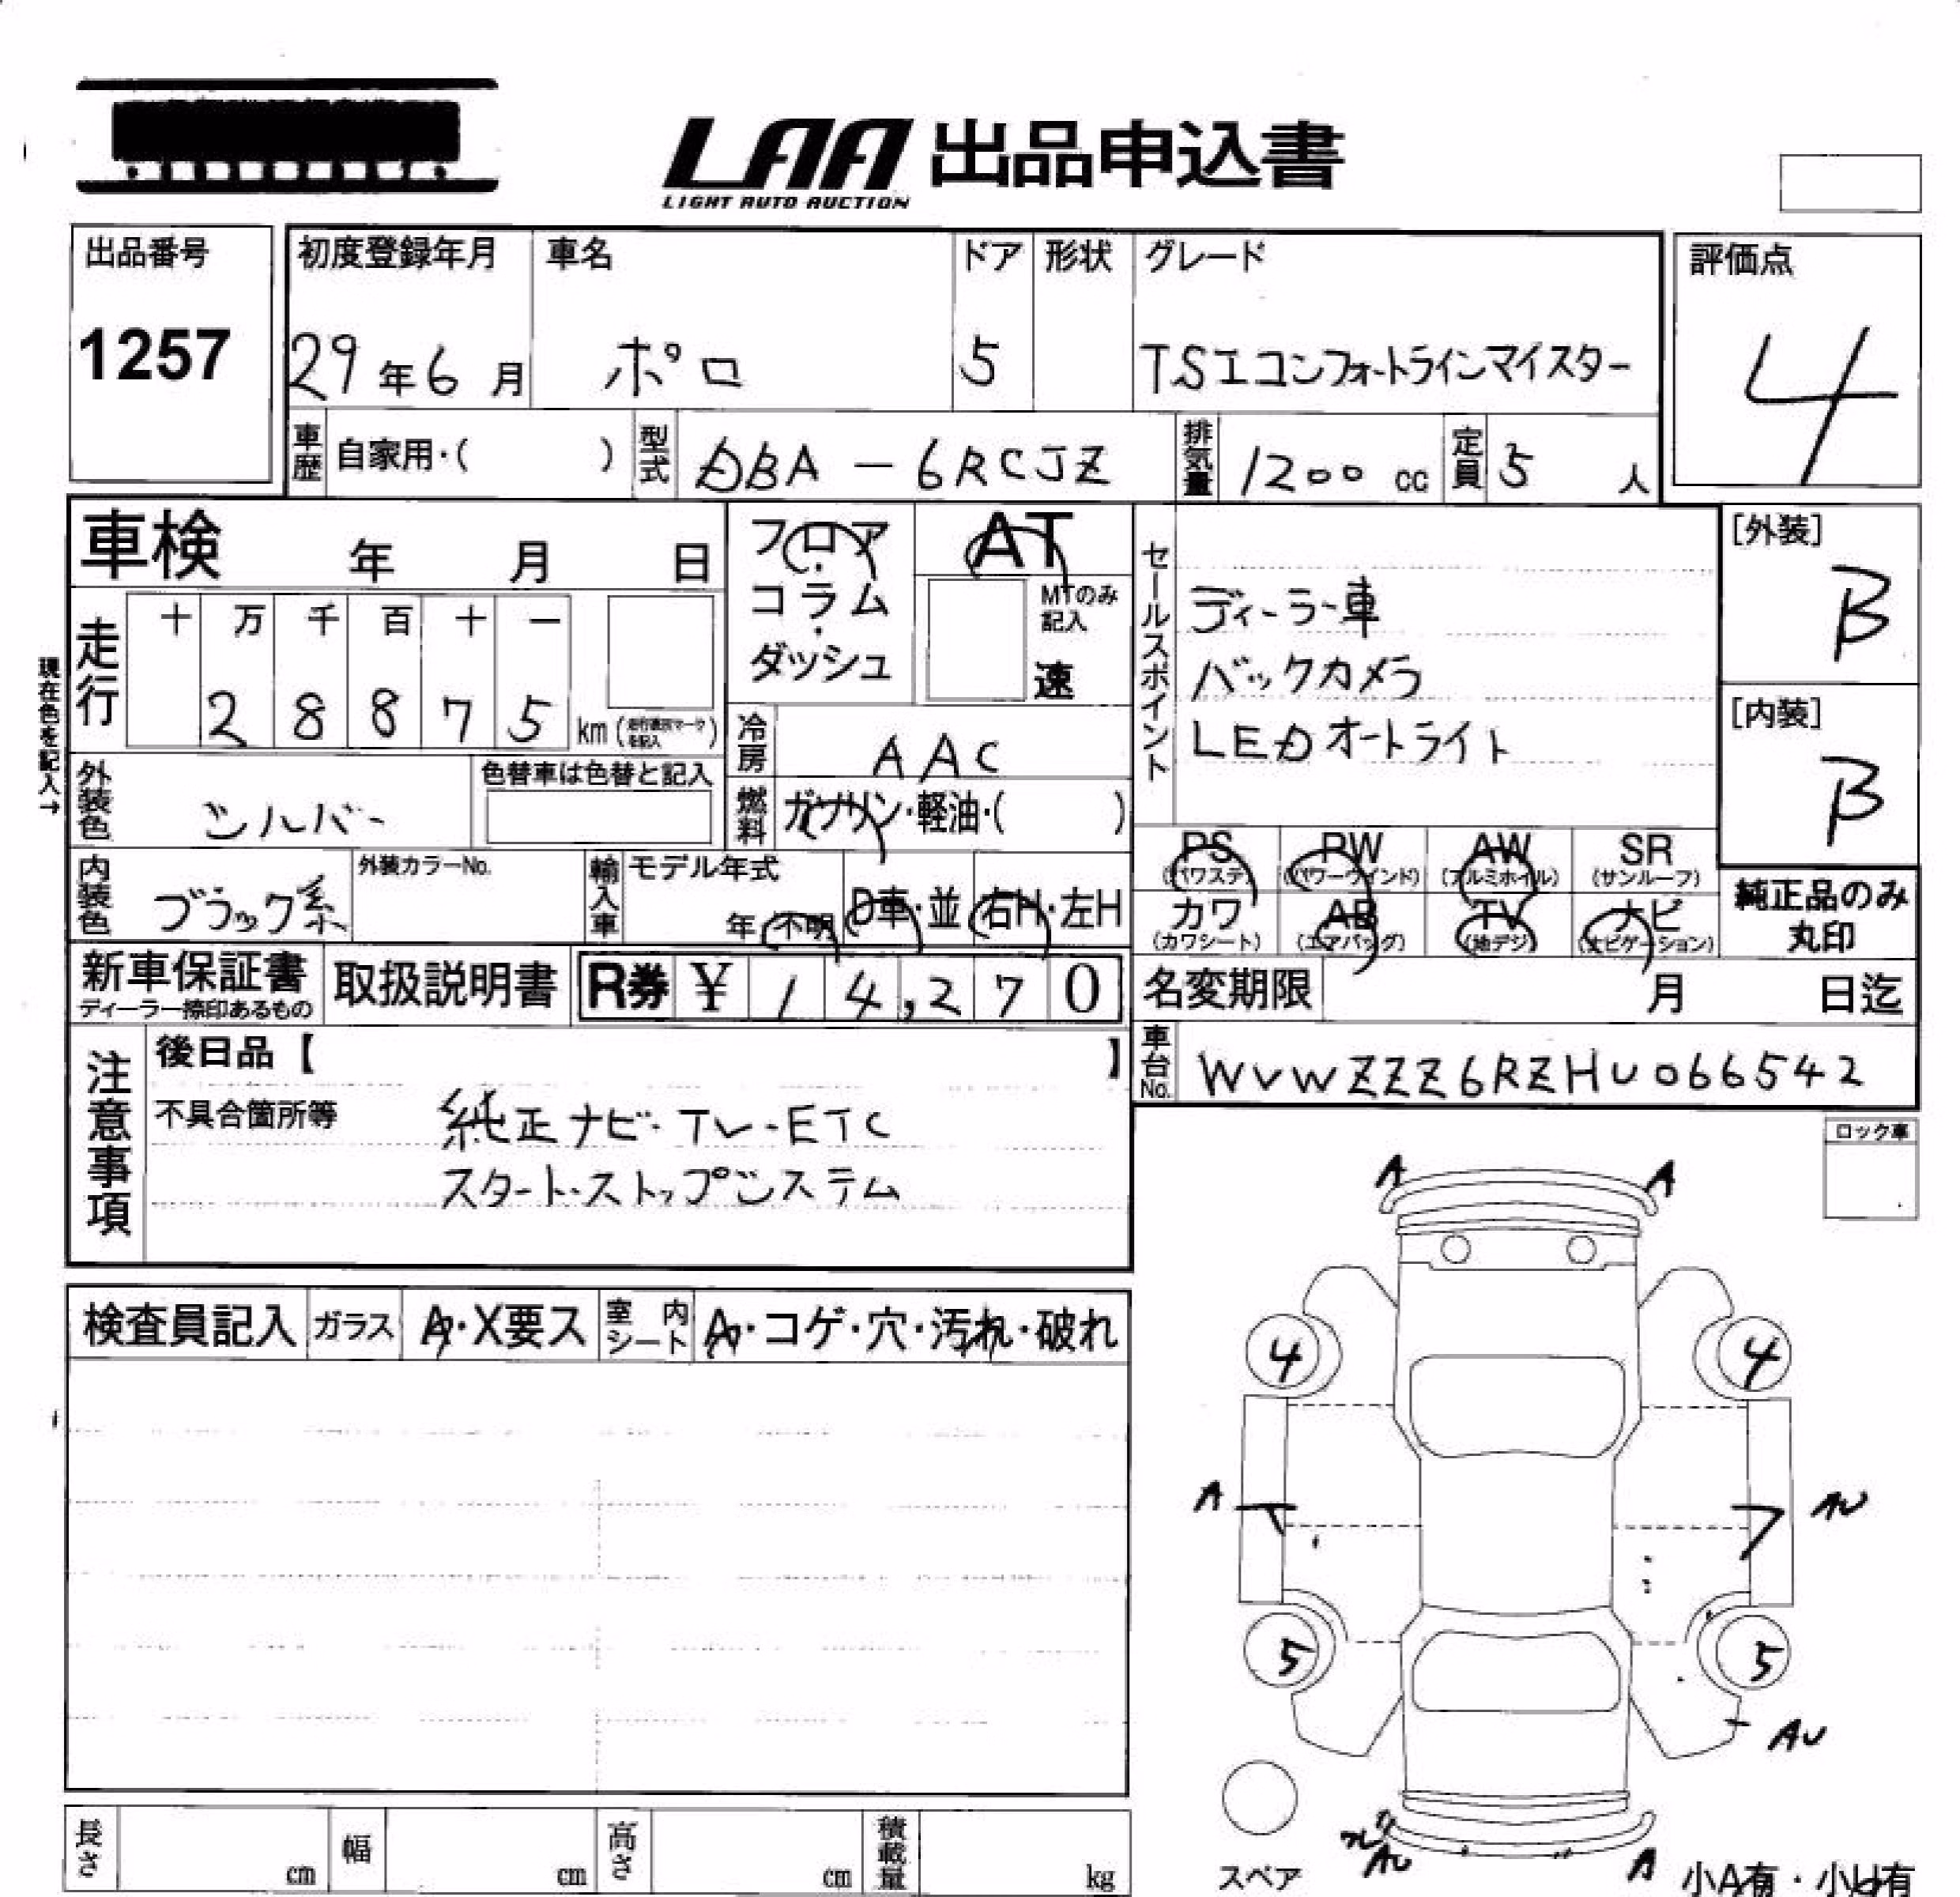 LAA 出品申込書
LIGHT AUTO AUCTION
出品番号 初度登録年月 車名 ドア 形状 グレード 評価点
1257 29年6月 ポロ 5 TSIコンフォートラインマイスター 4
車歴 自家用・( ) 型式 DBA-6RCJZ 排気量 1200 cc 定員 5 人
車検 年 月 日
フロア・コラム・ダッシュ
AT
MTのみ記入
速
セールスポイント
ディーラー車
バックカメラ
LEDオートライト
[外装]
B
[内装]
B
現在色を記入→
走行 十 万 千 百 十 一
2 8 8 7 5 km (走行選択マークを記入)
冷房 AAC
外装色 シルバー 色替車は色替と記入
燃料 ガソリン・軽油・( )
PS (パワステ) PW (パワーウインド) AW (アルミホイル) SR (サンルーフ)
カワ (カワシート) AB (エアバッグ) TV (地デジ) ナビ (ナビゲーション)
純正品のみ
丸印
内装色 ブラック系 外装カラーNo. 輸入車 モデル年式 年 不明 D車・並 右H・左H
新車保証書 取扱説明書 R券 ¥ 14,270
ディーラー捺印あるもの
名変期限 月 日迄
車台No. WVWZZZ6RZHU066542
注意事項
後日品【 】
不具合箇所等
純正ナビ・TV・ETC
スタート・ストップシステム
ロック車
検査員記入 ガラス A・X要ス 室内シート A・コゲ・穴・汚れ・破れ
A A
4 4
A AU
5 5
AU
AU A
スペア
小A有・小U有
長さ cm 幅 cm 高さ cm 積載量 kg